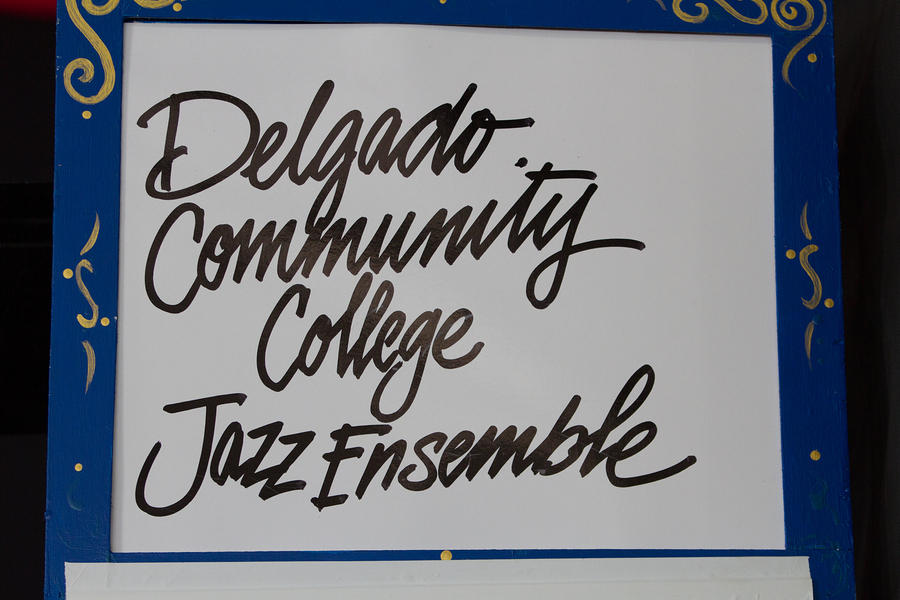 Delgado
Community
College
Jazz Ensemble